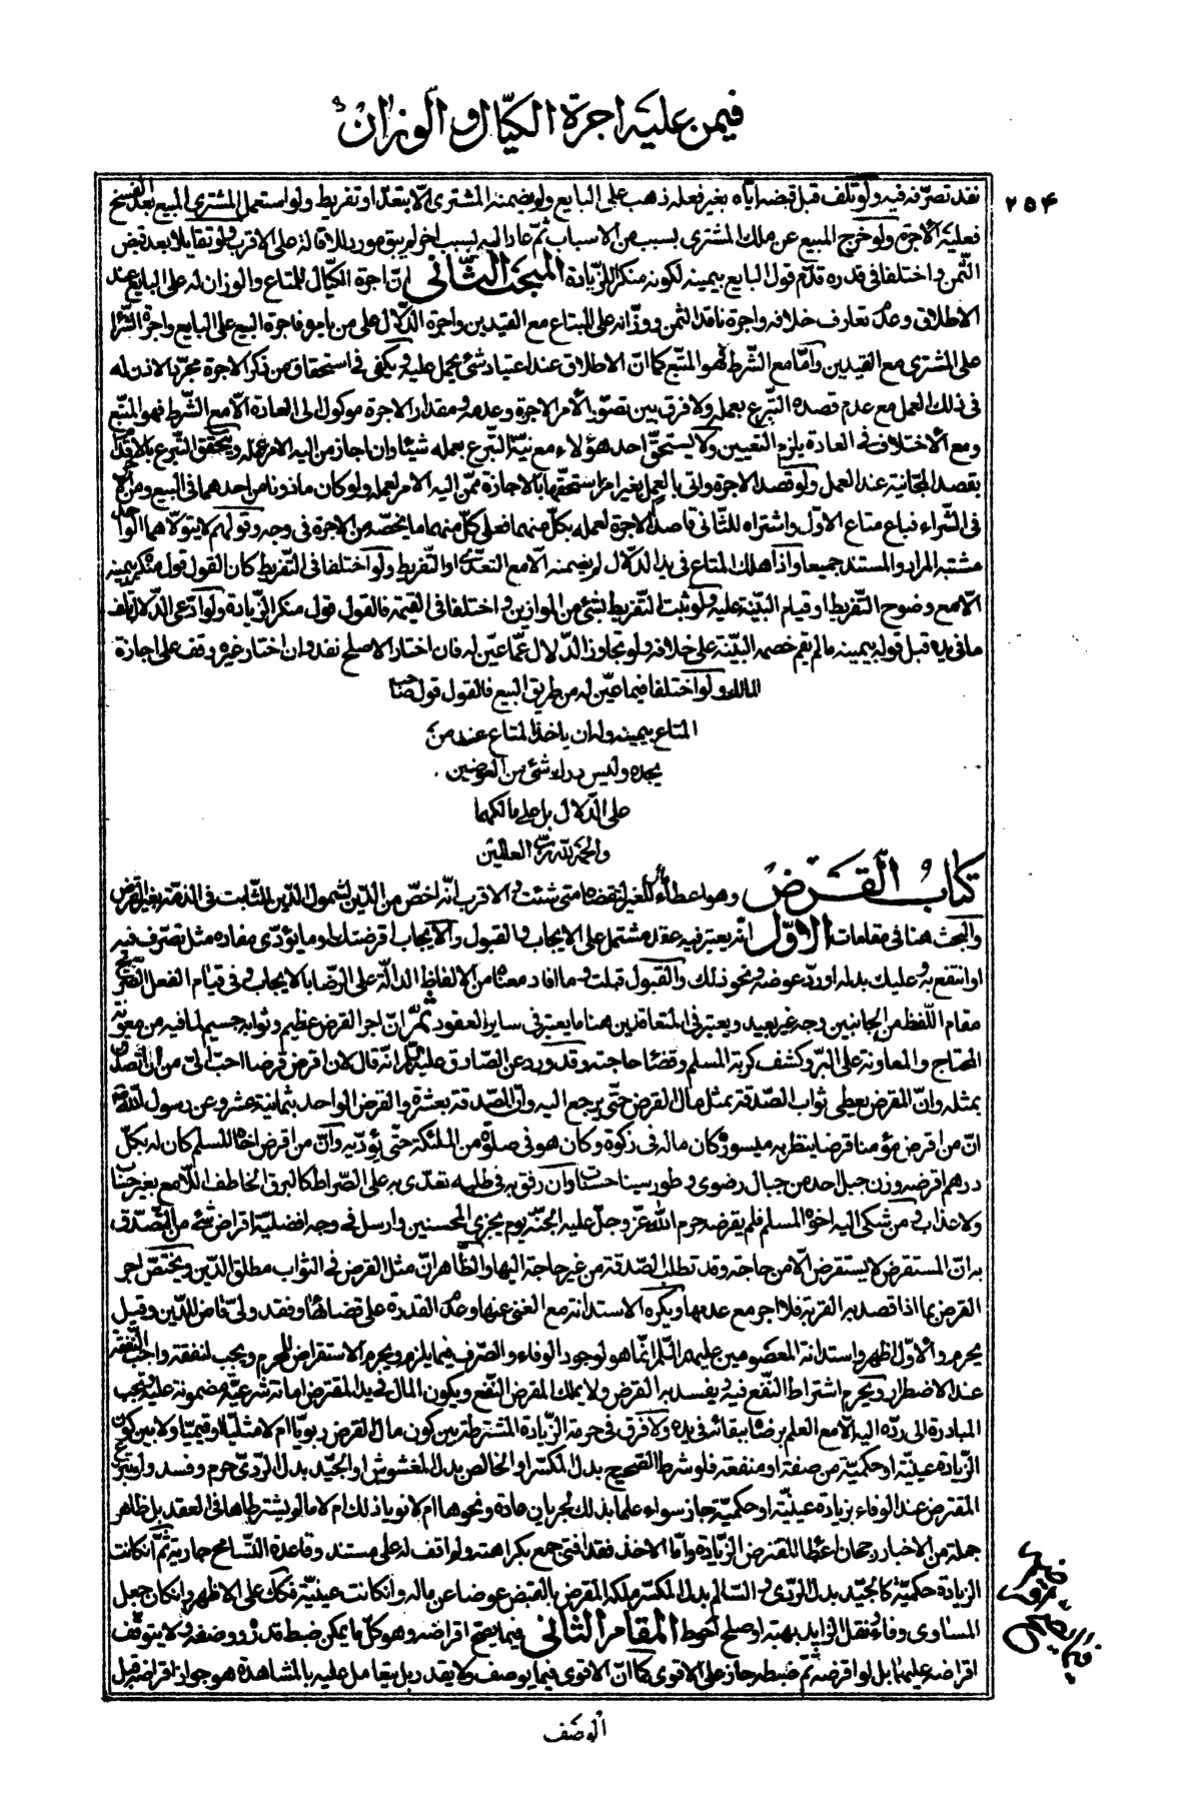 فيمن عليه اجرة الكيّال والوزان
٢٥٤
نفذ تصرّفه فيه ولو تلف قبل قبضه ايّاه بغير فعله ذهب على البايع ولم يضمنه المشترى الّا بتعدّ او تفريط ولو استعمل المشترى المبيع بعد الفسخ
فعليه الاجرة ولو خرج المبيع عن ملك المشترى بسبب من الاسباب ثمّ عاد اليه بسبب اخر لم يبق مورد للاقالة على الاقرب ولو تقايلا بعد قبض
الثّمن واختلفا فى قدره قدّم قول البايع بيمينه لكونه منكرا للزّيادة المبحث الثّانى انّ اجرة الكيّال للمتاع والوزان له على البايع عند
الاطلاق وعدم تعارف خلافه واجرة ناقد الثمن ووزّانه على المبتاع مع القيدين واجرة الدلّال على من يامره فاجرة البيع على البايع واجرة الشّراء
على المشترى مع القيدين وامّا مع الشّرط فهو المتّبع كما انّ الاطلاق عند اعتياد شئ يحمل عليه ويكفى فى استحقاق من ذكر الاجرة مجرّد الاذن له
فى ذلك العمل مع عدم قصده التّبرع بعمله ولا فرق بين تصوّر الأمر الاجرة وعدمه ومقدار الاجرة موكول الى العادة الّا مع الشّرط فهو المتّبع
ومع الأختلاف فى العادة يلزم التّعيين ولا يستحقّ احد هؤلاء مع نيّة التّبرع بعمله شيئا وان اجاز من اليه الامر عمله ويتحقق التّبرع بالاقدام
بقصد المجّانية عند العمل ولو قصد الاجرة واتى بالعمل بغير امر استحقّها بالاجازة ممّن اليه الامر لعمله ولو كان ماذونا من احدهما فى البيع ومن الاخر
فى الشّراء فباع متاع الاوّل واشتراه للثّانى قاصدا الاجرة لعمله بكلّ منهما فعلى كلّ منهما ما يخصّه من الاجرة فى وجه وقولهم لا يتولّاهما الواحد
مشتبه المراد والمستند جميعا واذا هلك المتاع فى يد الدلّال لم يضمنه الّا مع التعدّى او التّفريط ولو اختلفا فى التّفريط كان القول قول منكره بيمينه
الّا مع وضوح التّفريط او قيام البيّنة عليه ولو ثبت التّفريط بشئ من الموازين واختلفا فى القيمة فالقول قول منكر الزّيادة ولو ادّعى الدّلال تلف
ما فى يده قبل قوله بيمينه ما لم يقم خصمه البيّنة على خلافه ولو تجاوز الدّلال عمّا عيّن له فان اختار الاصلح نفذ وان اختار غيره وقف على اجازة
المالك ولو اختلفا فيما عيّن له من طريق البيع فالقول قول صاحب
المتاع بيمينه وله ان ياخذ المتاع عند من
يجده وليس درك شئ من العوضين
على الدّلال بل على مالكهما
والحمد لله ربّ العالمين
كتاب القرض وهو اعطاء مال للغير لنقضاه متى شئت والاقرب انّه اخصّ من الدّين لشمول الدّين للثّابت فى الذمّة بغير القرض
والبحث هنا فى مقامات الاوّل انّه يعتبر فيه عقد مشتمل على الايجاب والقبول والايجاب اقرضتك او ما يؤدّى مفاده مثل تصرّف فيه
او انتفع به وعليك بدله او ردّ عوضه ونحو ذلك والقبول قبلت وما افاد معناه من الالفاظ الدالّة على الرّضا بالايجاب وفى قيام الفعل الصّريح
مقام اللّفظ من الجانبين وجه غير بعيد ويعتبر فى المتعاقدين هنا ما يعتبر فى ساير العقود ثمّ انّ اجر القرض عظيم وثوابه جسيم لما فيه من معونة
المحتاج والمعاونة على البر وكشف كربة المسلم وقضاء حاجته وقد ورد عن الصّادق عليه السّلام انّه قال لان اقرض قرضا احبّ الىّ من ان اتصدّق
بمثله وانّ المقرض يعطى ثواب الصّدقة بمثل مال القرض حتّى يرجع اليه وانّ الصّدقة بعشرة والقرض الواحد بثمانية عشر وعن رسول الله
انّ من اقرض مؤمنا قرضا ينظر به ميسوره كان ماله فى زكوة وكان هو فى صلوة من الملئكة حتّى يؤدّيه وانّ من اقرض اخاه المسلم كان له بكلّ
درهم اقرضه وزن جبل احد من جبال رضوى وطور سينا حسنات وان رفق به فى طلبه تعدّى به على الصّراط كالبرق الخاطف اللّامع بغير حساب
ولا عذاب ومن شكى اليه اخوه المسلم فلم يقرضه حرم الله عزّ وجلّ عليه الجنّة يوم يجزى المحسنين وارسل فى وجه افضليّة اقراض شئ من التّصدّق
به انّ المستقرض لا يستقرض الّا من حاجة وقد تطلب الصّدقة من غير حاجة اليها والظّاهر انّ مثل القرض فى الثواب مطلق الدّين ويختصّ اجر
القرض بما اذا قصد به القربة فلا اجر مع عدمها ويكره الاستدانة مع الغنى عنها وعدم القدرة على قضائها وفقد ولىّ قاض للدّين وقيل
يحرم والأوّل اظهر واستدانة المعصومين عليهم السّلام انّما هو لوجود الوفاء والصّرف فيما يلزم ويحرم الاستقراض للمحرم ويجب لنفقة واجب النّفقة
عند الاضطرار ويحرم اشتراط النّفع فيه ويفسد به القرض ولا يملك المقرض النّفع ويكون المال فى يد المقترض امانة شرعيّة مضمونة عليه ويجب
المبادرة الى ردّه اليه الّا مع العلم برضاه ببقائه فى يده ولا فرق فى حرمة الزّيادة المشترطة بين كون مال القرض ربويّا ام لا مثليّا او قيميّا ولا بين كون
الزّيادة عينيّة او حكميّة من صفة او منفعة فلو شرط الصّحيح بدل المكسّر او الخالص بدل المغشوش او الجيّد بدل الرّدىّ حرم وفسد ولو تبرّع
المقترض عند الوفاء بزيادة عينيّة او حكميّة جاز سواء علما بذلك لجريان عادة ونحوها ام لا نويا ذلك ام لا ما لم يشترطاها فى العقد بل ظاهر
جملة من الاخبار رجحان اعطاء المقترض الزّيادة وامّا الاخذ فقد افتى جمع بكراهته ولم اقف له على مستند وقاعدة التّسامح جارية ثمّ ان كانت
الزيادة حكميّة كالجيّد بدل الرّدى والسّالم بدل المكسّر ملكه المقرض بالقبض عوضا عن ماله وان كانت عينيّة فكك على الاظهر وان كان جعل
المساوى وفاء ونقل الزايد بهبة او صلح احوط المقام الثّانى فيما يصحّ اقراضه وهو كلّ ما يمكن ضبط قدره ووصفه ولا يتوقّف
اقراضه عليهما بل لو اقرضه ثمّ ضبطه جاز على الاقوى كما انّ الاقوى فيما يوصف ولا يقدر بل يتعامل عليه بالمشاهدة هو جواز اقراضه قبل
الوصف